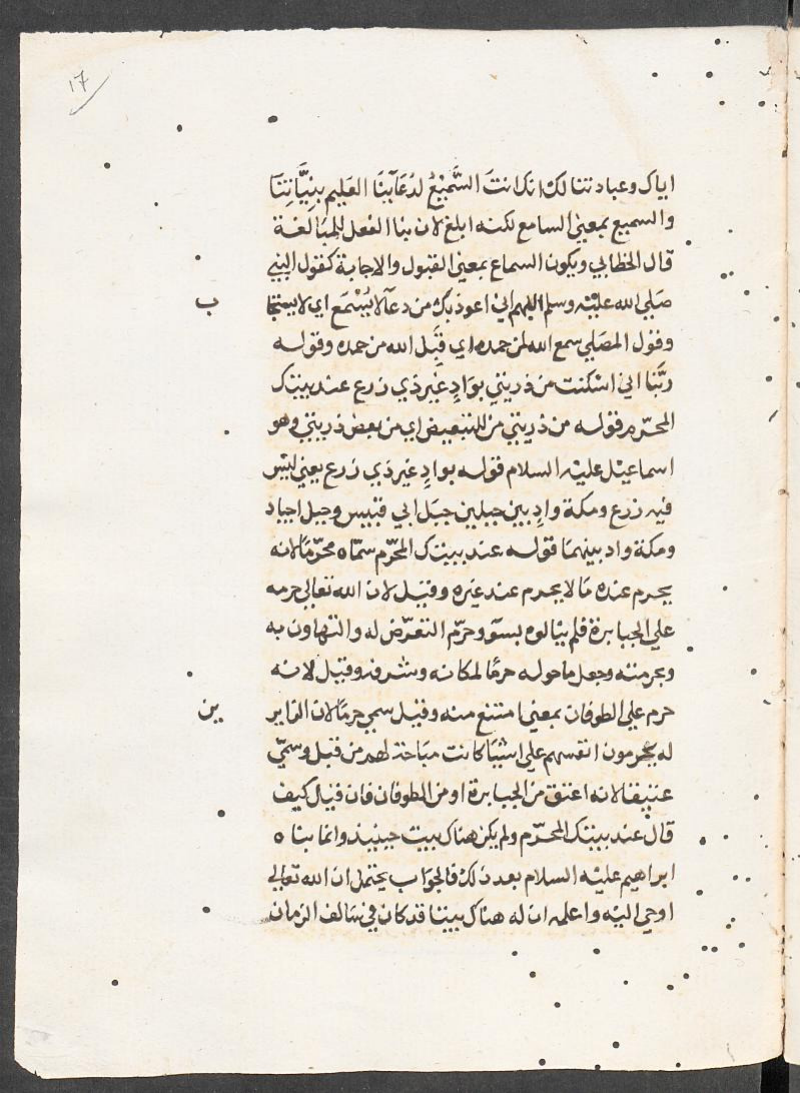 ١٧
اياك وعبادتنا لك انك انت السَّمِيْعُ لدُعَآيِنَا العَليم بِنِيَّاتِنَا
والسميع بمعني السامع لكنه ابلغ لان بنا الفعل للمبَالغة
قال الخطابي ويكون السماع بمعني القبول والاجابة كقول النبي
صَلي الله عليْه وسلم اللهم اني اعوذ بك من دعآ لا يُسْمَع اي لا يستجا
ب
وقول المصَلي سمع الله لمن حمده اي قَبِل الله من حمده وقوله
رَبَّنا اني اسْكنت من ذريتي بوَادٍ غير ذي زرع عند بيتك
المحرّم قوله من ذريتي من للتبعيض اي من بعض ذريتي وهو
اسماعيل عليه السلام قوله بوادٍ غير ذي زرع يعني ليْس
فيه زرع ومكة وادٍ بين جبلين جبَل ابي قبيس وجبل اجياد
ومكة واد بينهمَا قوله عند بيتك المحرّم سمّاه محرّمًا لانه
يحرم عنده مَا لا يحرم عند غيره وقيْل لان الله تعالي حرمه
علي الجبابرة فلم ينالوه بسوٓ وحرّم التعرّض له والتهاون به
وبحرمته وجعل ماحوله حرمًا لمكانه وشرفه وقيل لانه
حرم علي الطوفان بمعني امتنع منه وقيل سمي حرمًا لان الزاير
ين
له يحرمون انفسهم علي اشيَا كانت مبَاحة لهم من قبل وسمّي
عتيقا لانه اعتق من الجبابرة او من الطوفان فان قيل كيف
قال عند بيتك المحرّم ولم يكن هناك بيت حينيذ وانما بناه
ابراهيم عليه السلام بعد ذلك فالجوَاب يحتمل ان الله تعالي
اوحي اليْه واعلمه ان له هناك بيتا قد كان في سَالف الزمان